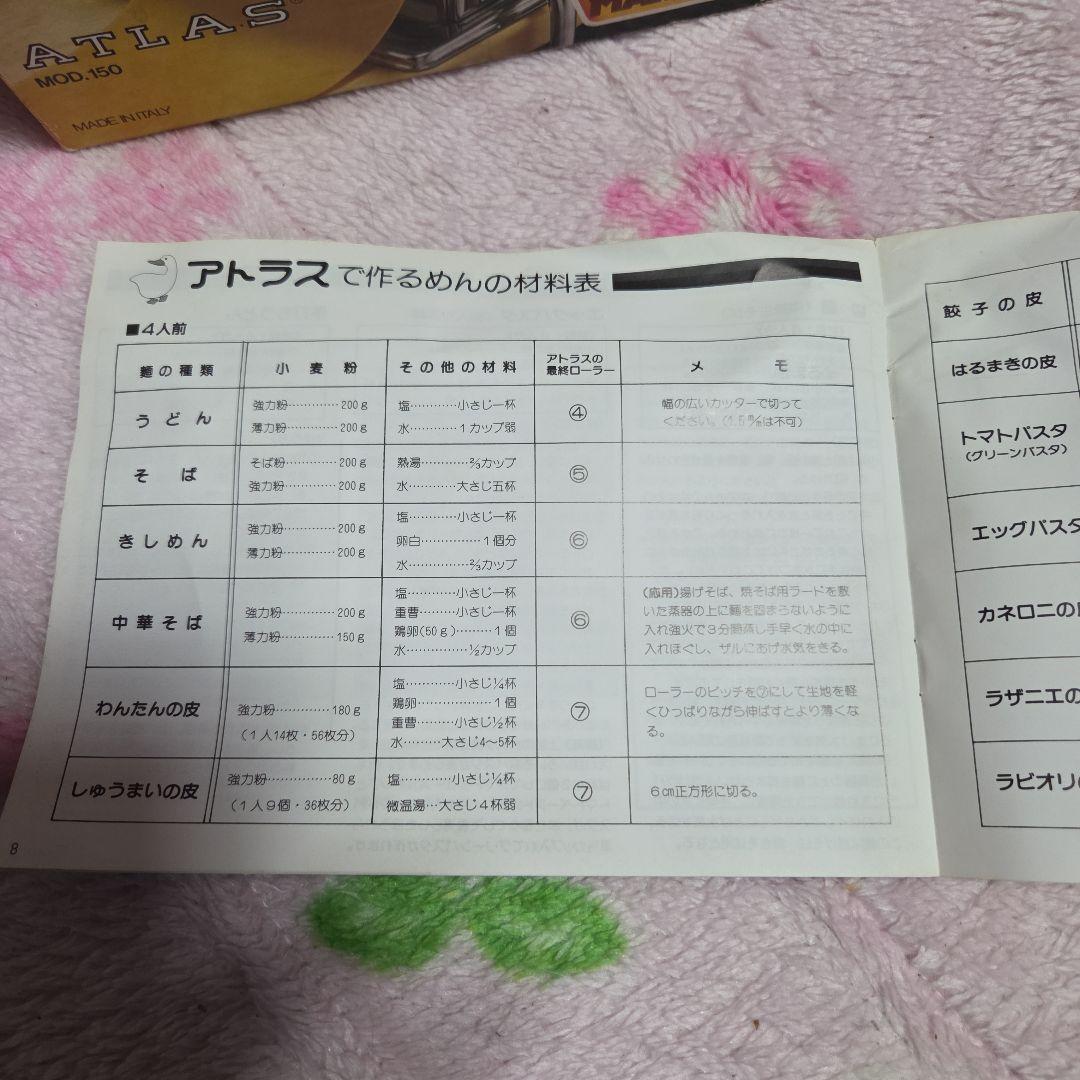 ATLAS®
MOD.150
MADE IN ITALY
アトラスで作るめんの材料表
■4人前
麺の種類 小麦粉 その他の材料 アトラスの最終ローラー メモ
うどん
強力粉…………200g
薄力粉…………200g
塩…………小さじ一杯
水…………1カップ弱
④
幅の広いカッターで切って
ください。(1.5㎜は不可)
そば
そば粉…………200g
強力粉…………200g
熱湯…………⅔カップ
水………大さじ五杯
⑤
きしめん
強力粉…………200g
薄力粉…………200g
塩…………小さじ一杯
卵白……………1個分
水……………⅔カップ
⑥
中華そば
強力粉…………200g
薄力粉…………150g
塩…………小さじ一杯
重曹………小さじ一杯
鶏卵(50g)………1個
水……………½カップ
⑥
(応用)揚げそば、焼そば用ラードを敷
いた蒸器の上に麺を固まらないように
入れ強火で3分間蒸し手早く水の中に
入れほぐし、ザルにあげ水気をきる。
わんたんの皮
強力粉…………180g
(1人14枚・56枚分)
塩…………小さじ¼杯
鶏卵………………1個
重曹………小さじ½杯
水………大さじ4〜5杯
⑦
ローラーのピッチを⑦にして生地を軽
くひっぱりながら伸ばすとより薄くな
る。
しゅうまいの皮
強力粉……………80g
(1人9個・36枚分)
塩…………小さじ¼杯
微温湯…大さじ4杯弱
⑦
6㎝正方形に切る。
8
餃子の皮
はるまきの皮
トマトパスタ
(グリーンパスタ)
エッグパスタ
カネロニの
ラザニエの
ラビオリ